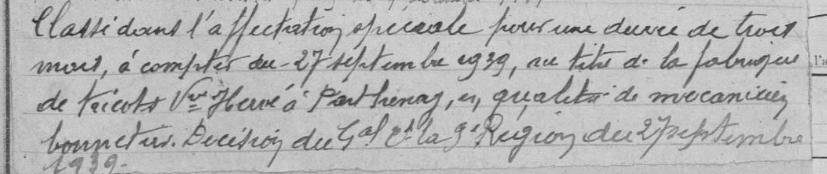 Classé dans l'affectation spéciale pour une durée de trois
mois, à compter du 27 septembre 1939, au titre de la fabrique
de tricots Vve Hervé à Parthenay, en qualité de mécanicien
bonnetier. Décision du Gal Ct la 9e Région du 27 septembre
1939.